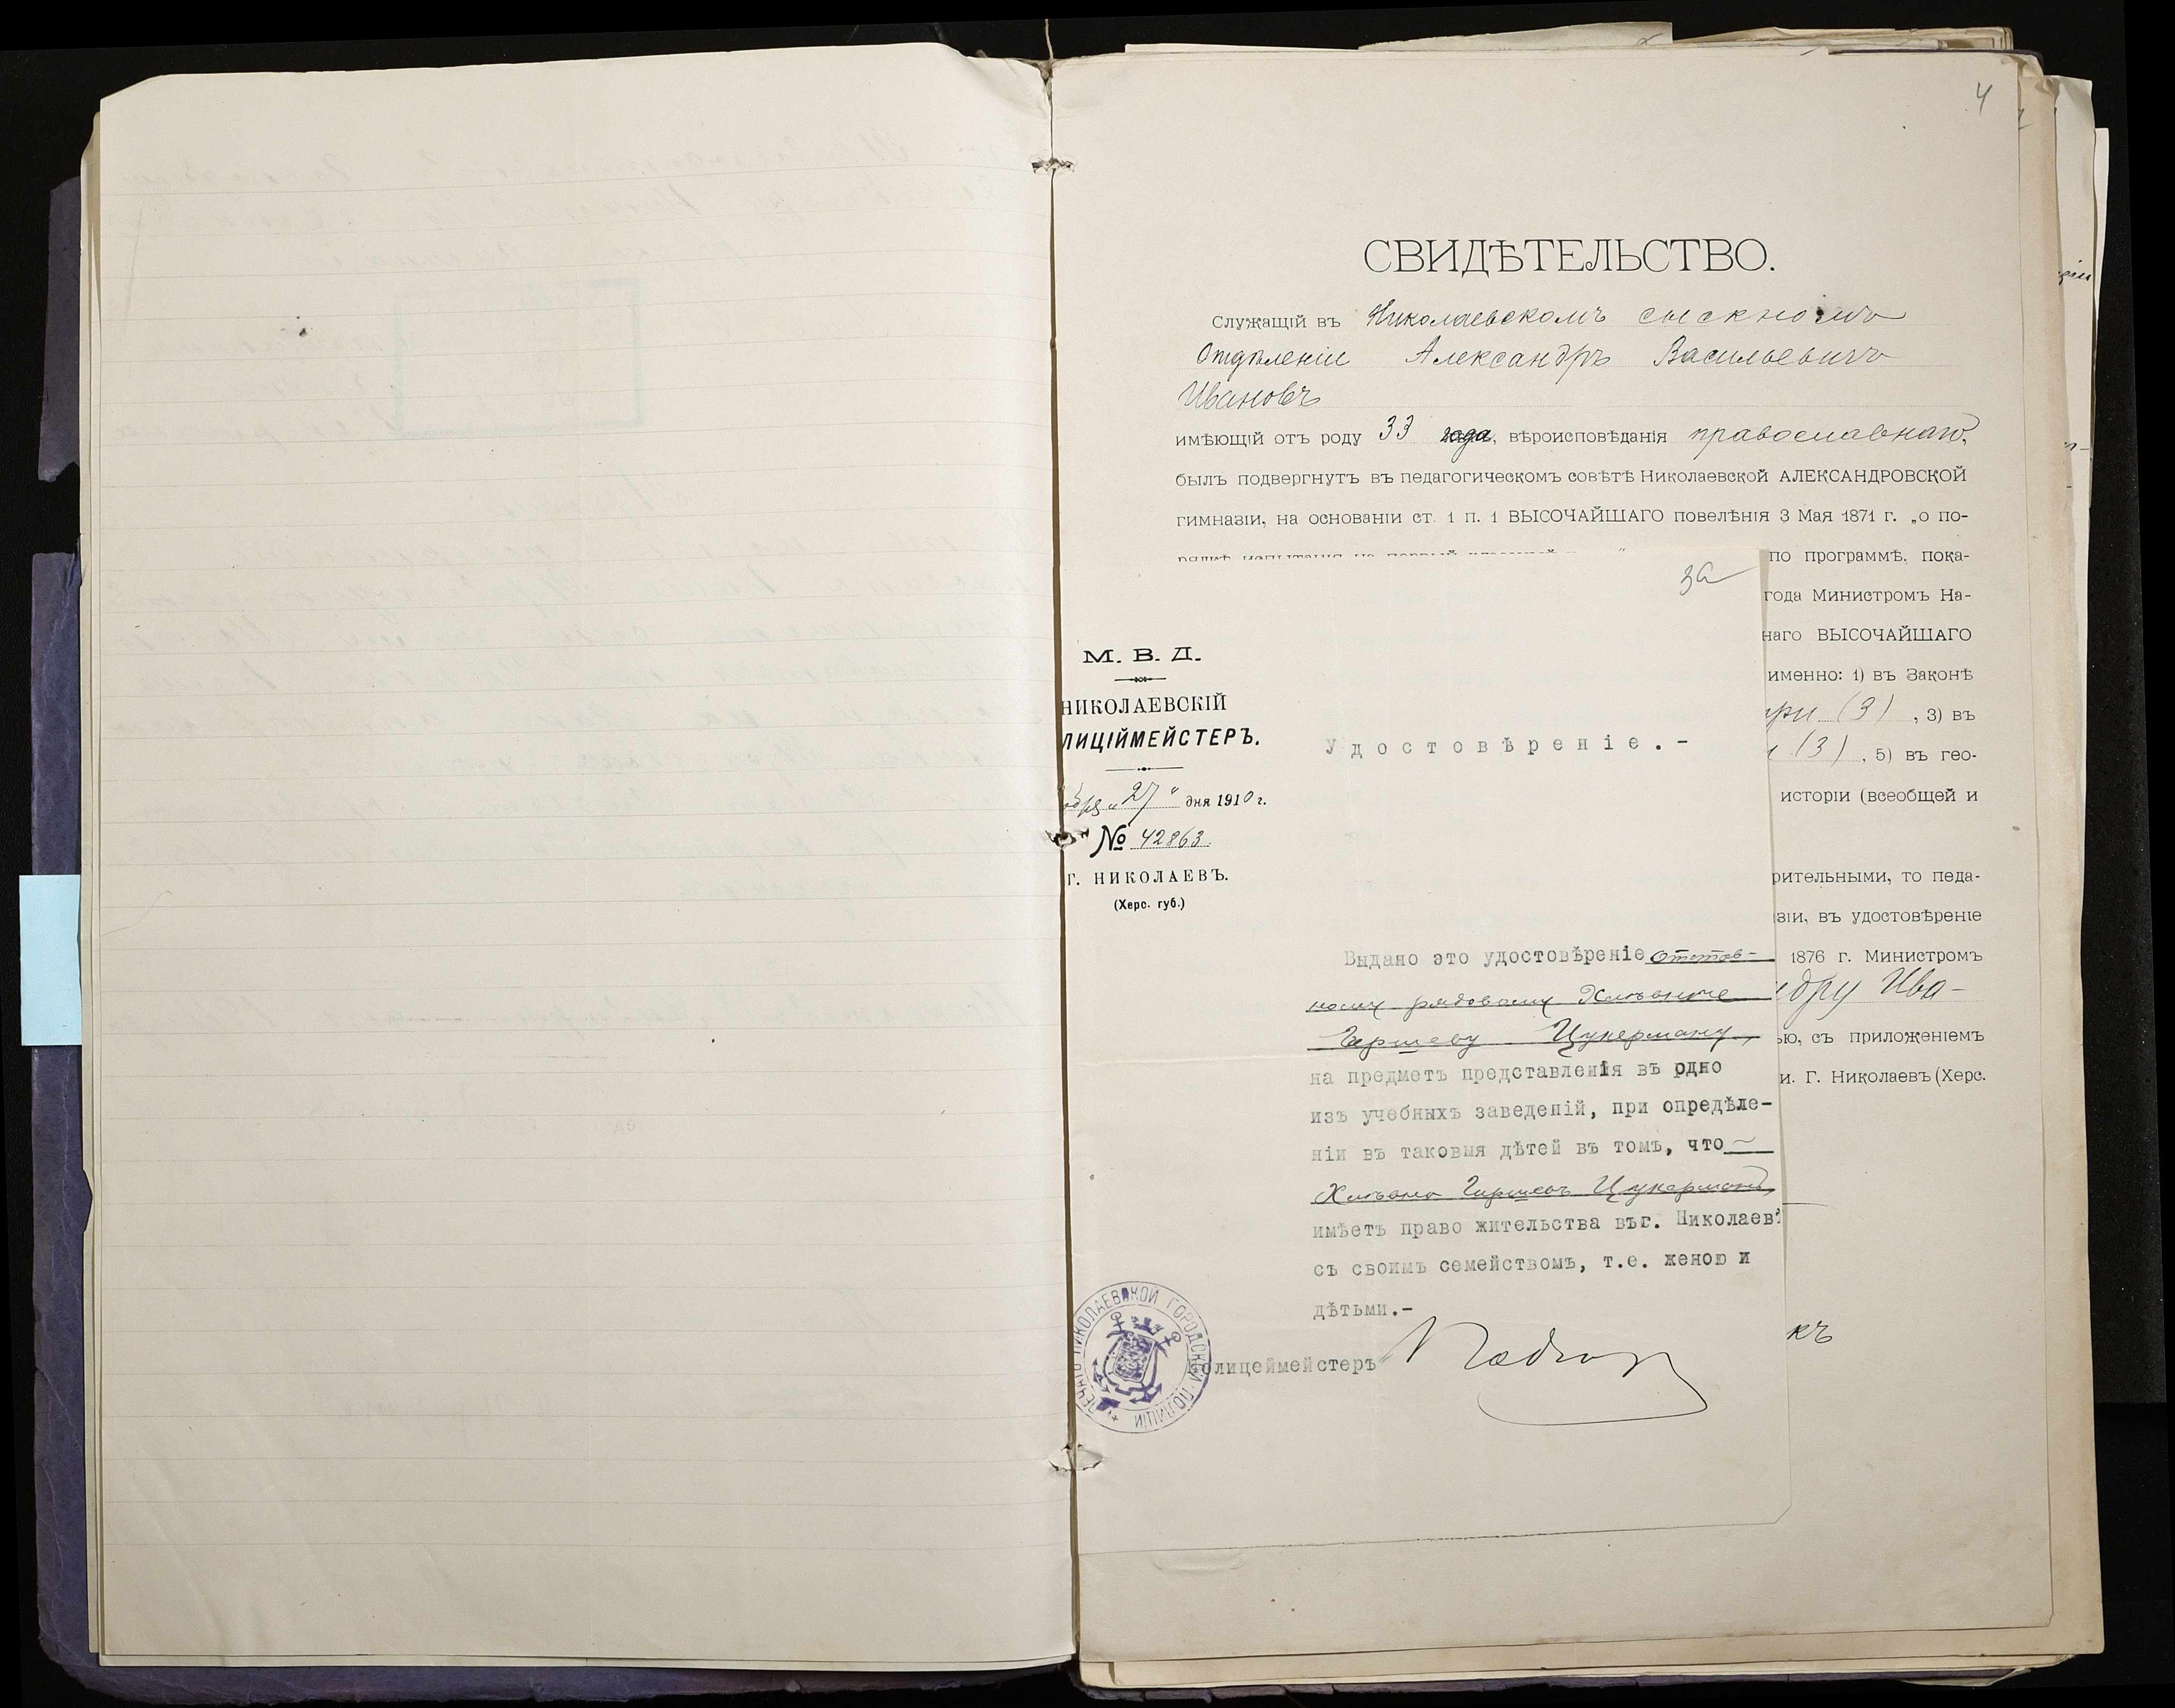 4
СВИДѢТЕЛЬСТВО.
Служащій въ Николаевскомъ сыскномъ
Отдѣленіи Александръ Васильевичъ
Ивановъ
имѣющій отъ роду 33 года, вѣроисповѣданія православнаго,
былъ подвергнутъ въ педагогическомъ совѣтѣ Николаевской АЛЕКСАНДРОВСКОЙ
гимназіи, на основаніи ст. 1 п. 1 ВЫСОЧАЙШАГО повелѣнія 3 Мая 1871 г. „о по-
рядкѣ испытанія на первый классный
по программѣ, пока-
года Министромъ На-
наго ВЫСОЧАЙШАГО
именно: 1) въ Законѣ
(3), 3) въ
(3), 5) въ гео-
исторіи (всеобщей и
рительными, то педа-
зіи, въ удостовѣреніе
1876 г. Министромъ
ндру Ива-
ью, съ приложеніемъ
и. Г. Николаевъ (Херс.
къ
3а
М. В. Д.
НИКОЛАЕВСКІЙ
ЛИЦІЙМЕЙСТЕРЪ.
бря „27" дня 1910 г.
№ 42863.
г. НИКОЛАЕВЪ.
(Херс. губ.)
Удостовѣреніе.-
Выдано это удостовѣреніе отстав-
ному рядовому
Гершеву Цукерману,
на предметъ представленія въ одно
изъ учебныхъ заведеній, при опредѣле-
ніи въ таковыя дѣтей въ томъ, что
Гершевъ Цукерманъ
имѣетъ право жительства въ г. Николаевѣ
съ своимъ семействомъ, т.е. женою и
дѣтьми.-
Полицеймейстеръ
ПЕЧАТЬ НИКОЛАЕВСКОЙ ГОРОДСКОЙ ПОЛИЦІИ